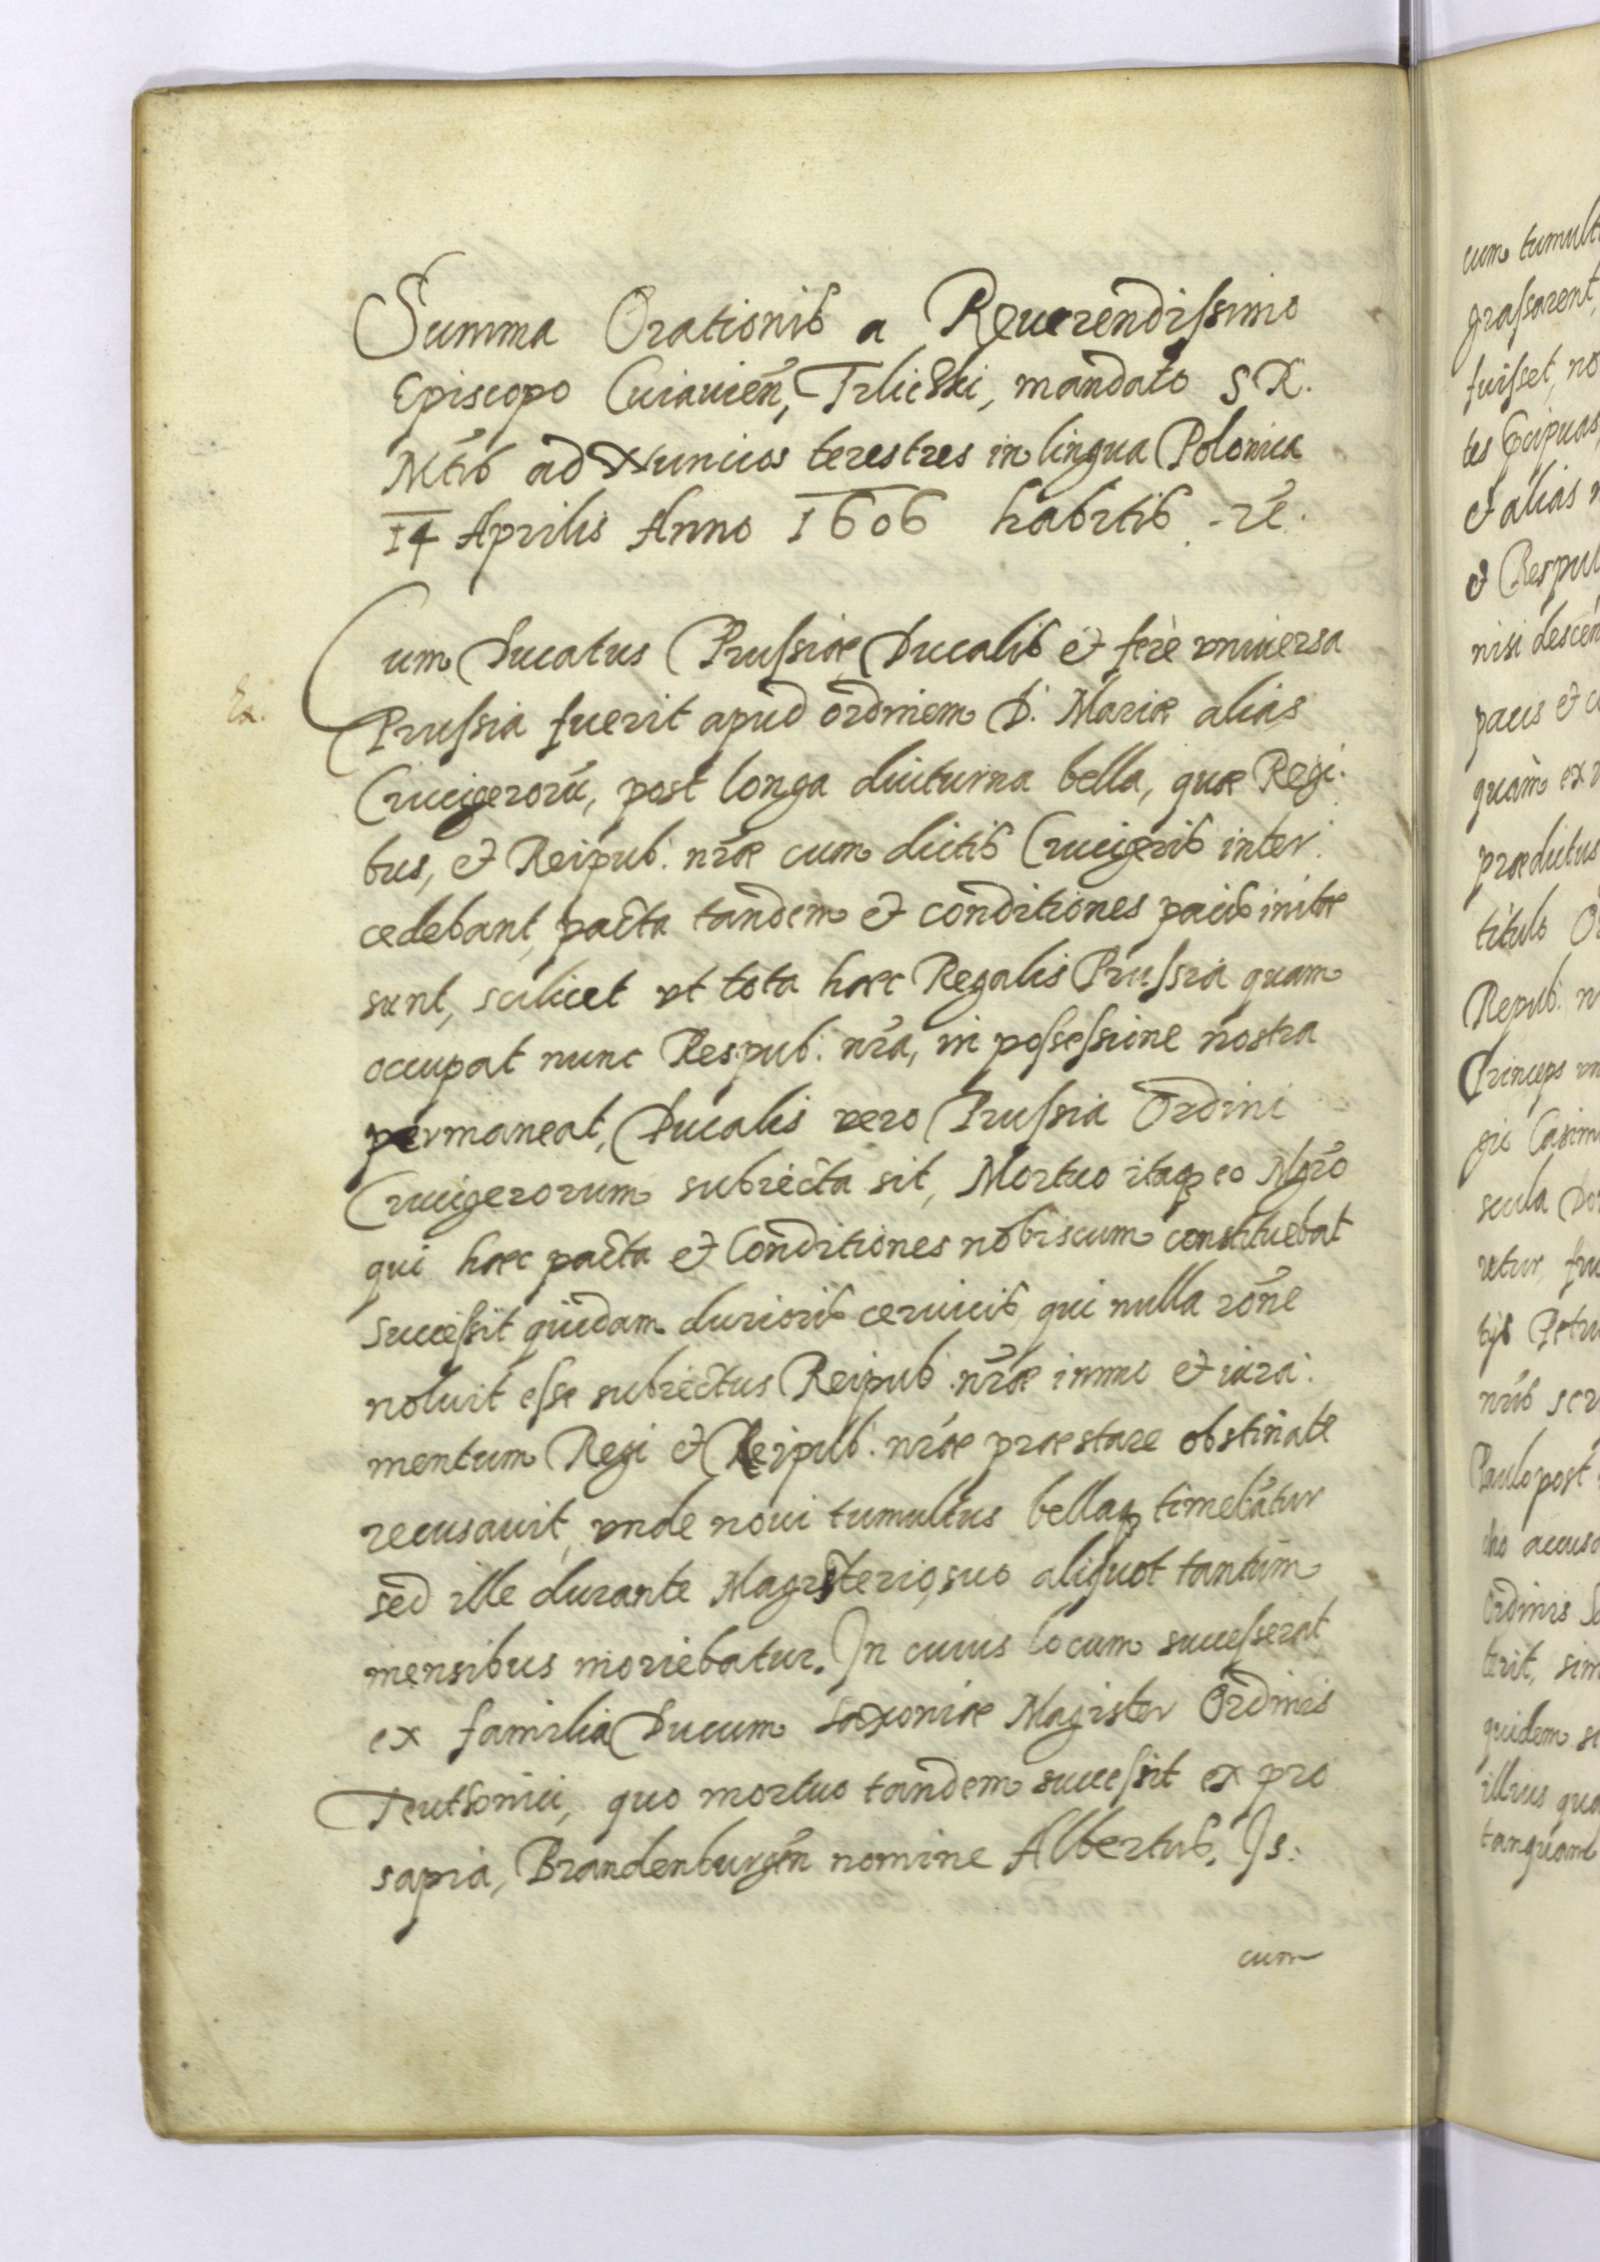 Summa Orationis a Reuerendissimo
Episcopo Cuiauien̄, Trlicski, mandato S R.
Mtis ad Nuncios terestres in lingua Polonica
14 Aprilis Anno 1606 habitis
Cum Ducatus Prussiæ Ducalis et ferè vniuersa
Ex.
Prussia fuerit apud ordinem D. Mariæ alias
Crucigerorū, post longa diuturna bella, quæ Regi-
bus, et Reipub. nræ cum dictis Crucigeris inter-
cedebant, pacta tandem et conditiones pacis initæ
sunt, scilicet vt tota hæc Regalis Prussia quam
occupat nunc Respub. nra, in possessione nostra
permaneat, Ducalis vero Prussia Ordini
Crucigerorum subiecta sit, Mortuo itaq eo Mgro
qui hæc pacta et Conditiones nobiscum constituebat
successit quidam durioris ceruicis qui nulla rōne
noluit esse subiectus Reipub. nræ immo et iura-
mentum Regi et Reipub. nræ præstare obstinate
recusauit, vnde noui tumultus bellaq timebātur
sed ille durante Magisterio suo aliquot tantùm
mensibus moriebatur. In cuius locum successerat
ex familia Ducum Saxoniæ Magister Ordinis
Teuthonici, quo mortuo tandem successit ex pro
sapia, Brandenburgēn nomine Albertus. Is.
cum
cum tumult
grassarent,
fuisset, no
et alias n
et Respub
nisi descen
pacis et c
quàm ex
prædictus
titulo
Repub. n
Princeps
gis Casim
secula
vtur, fru
nris scr
Paulo post
Ordinis
terit, sim
quidem
illius qua
tanquam